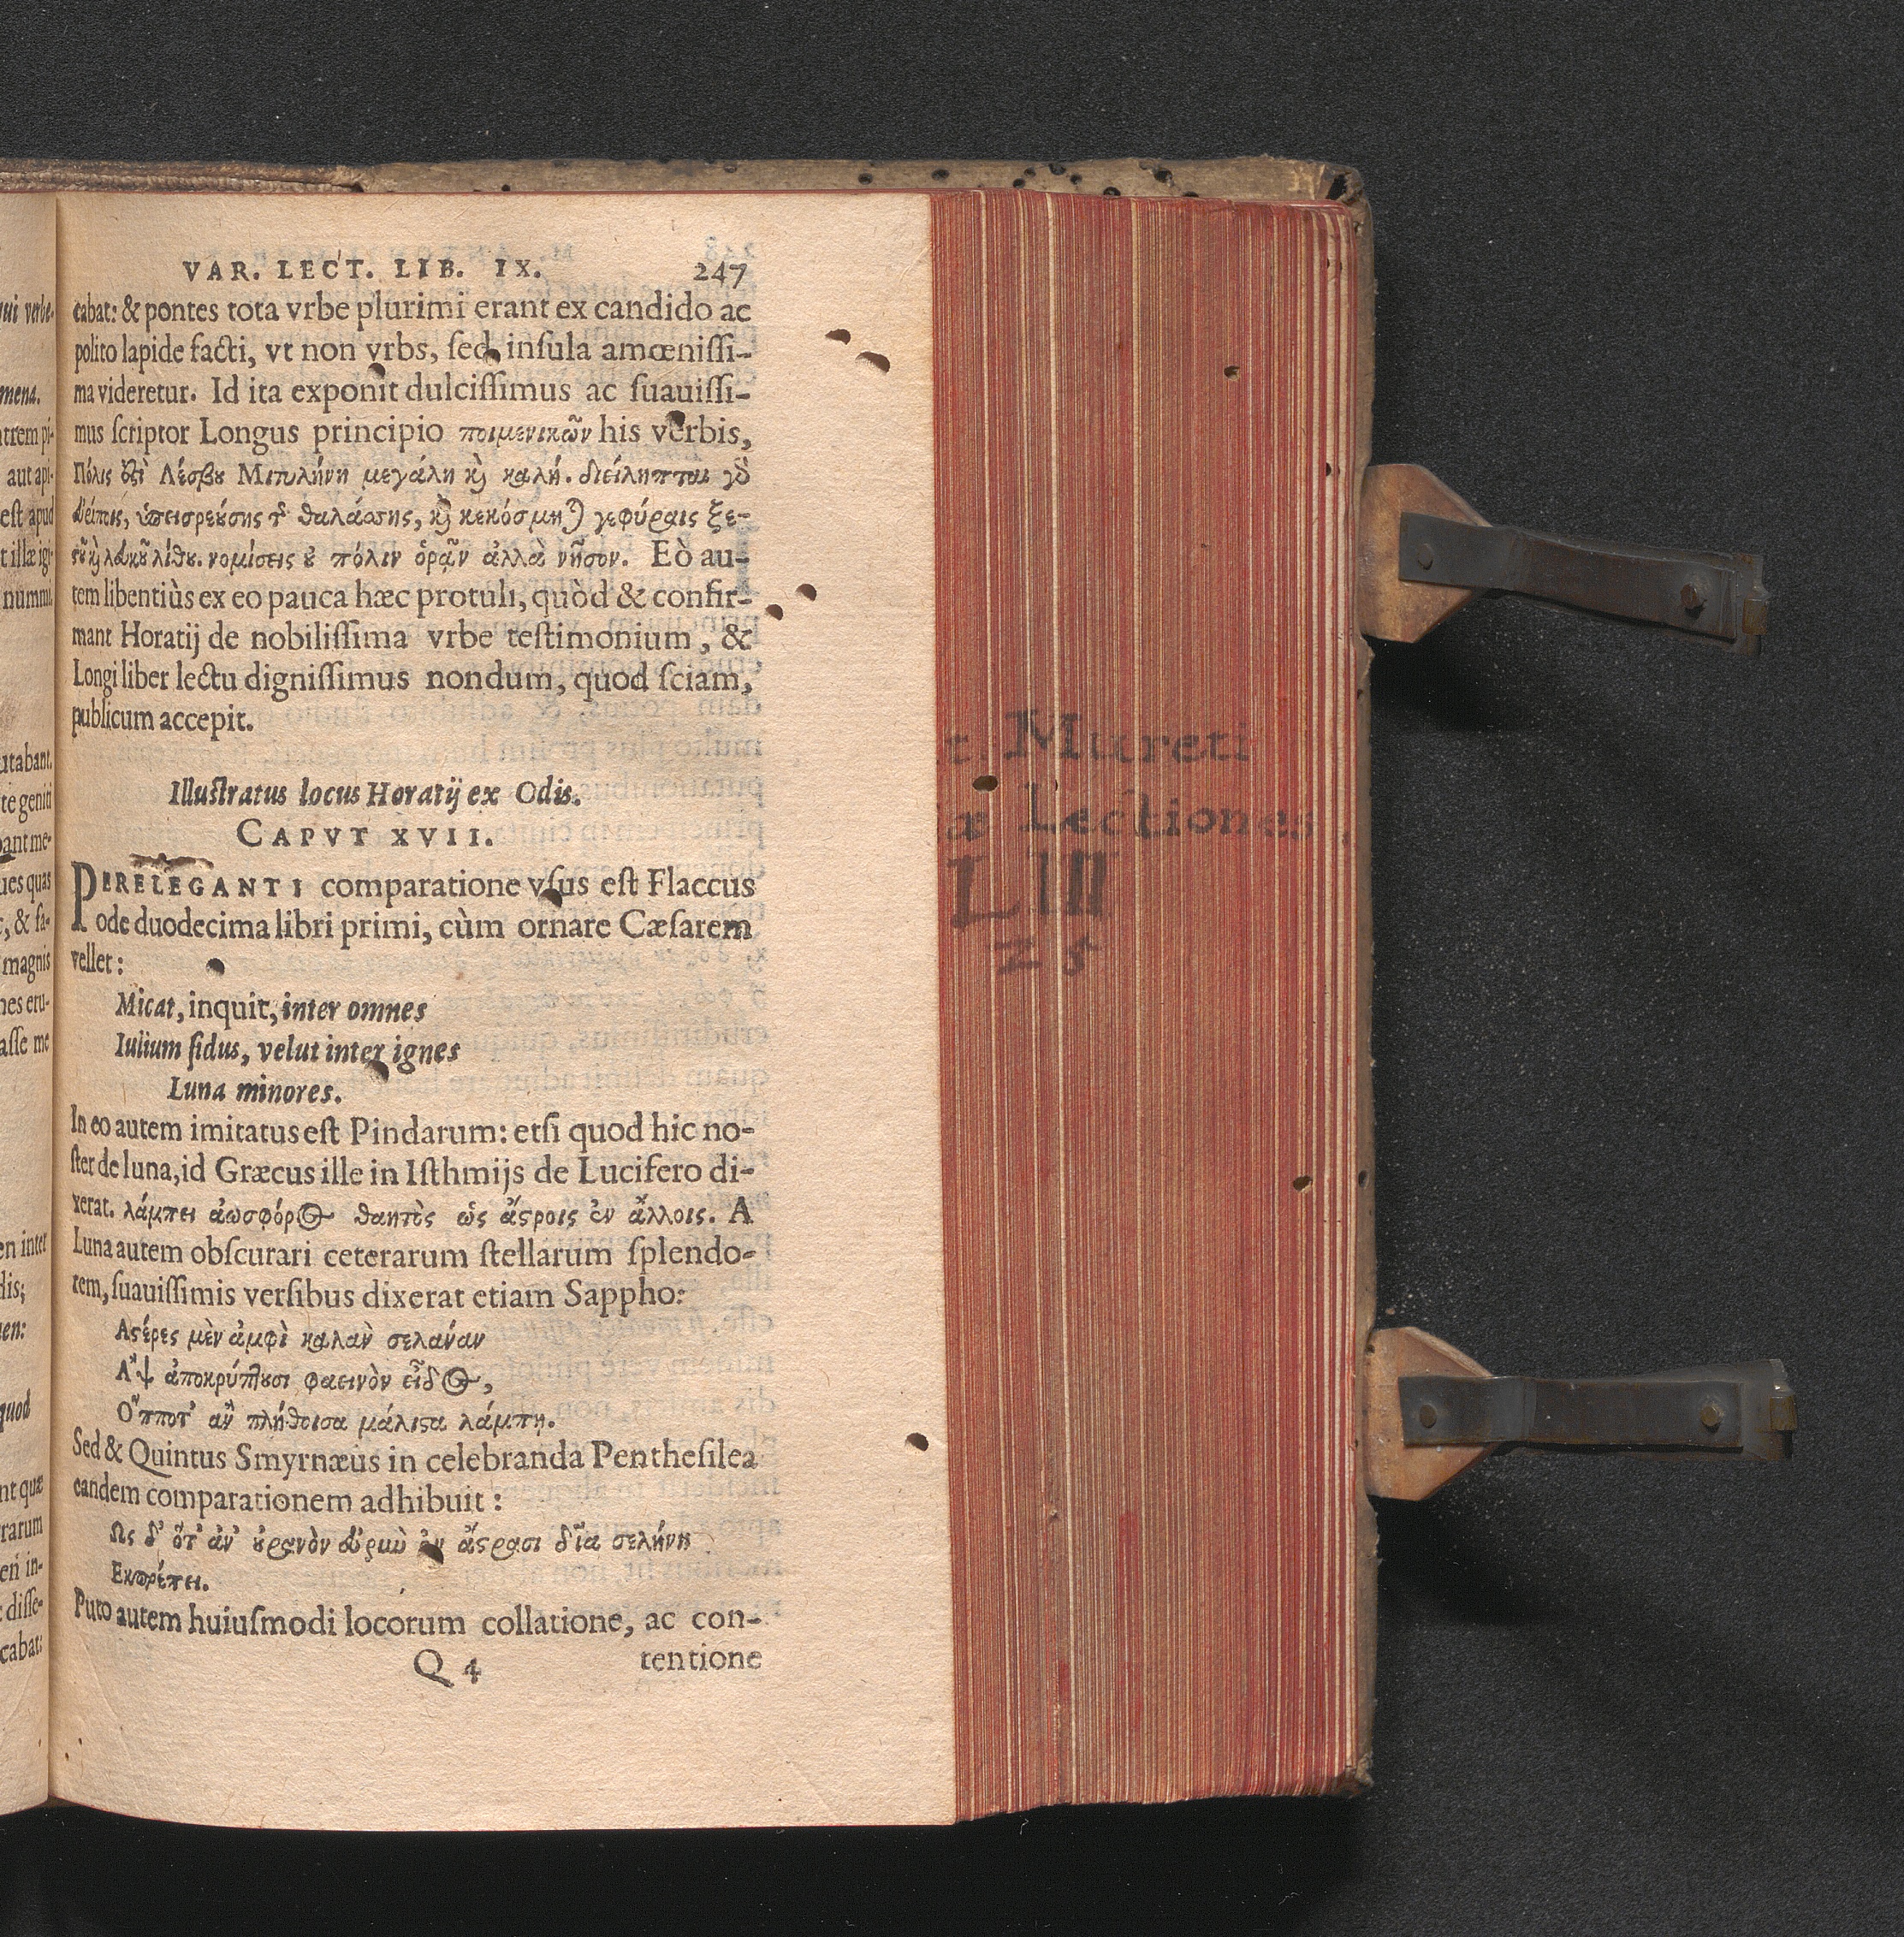 VAR. LECT. LIB. IX. 247
cabat: & pontes tota vrbe plurimi erant ex candido ac
polito lapide facti, vt non vrbs, ſed inſula amœniſſi-
ma videretur. Id ita exponit dulciſſimus ac ſuauiſſi-
mus ſcriptor Longus principio ποιμενικῶν his verbis,
Πόλις ἐςὶ Λέσβου Μιτυλήνη μεγάλη καὶ καλή. διείληπται γὸ
εὐρίποις, ὑπεισρεούσης τ͂ θαλάσσης, καὶ κεκόσμηται γεφύραις ξε-
ςοῦ καὶ λευκοῦ λίθου. νομίσεις οὐ πόλιν ὁρᾷν ἀλλὰ νῆσον. Eò au-
tem libentiùs ex eo pauca hæc protuli, quòd & confir-
mant Horatij de nobiliſſima vrbe teſtimonium, &
Longi liber lectu digniſſimus nondum, quod ſciam,
publicum accepit.
Illuſtratus locus Horatij ex Odis.
CAPVT XVII.
PERELEGANTI comparatione vſus eſt Flaccus
ode duodecima libri primi, cùm ornare Cæſarem
vellet:
Micat, inquit, inter omnes
Iulium ſidus, velut inter ignes
Luna minores.
In eo autem imitatus eſt Pindarum: etſi quod hic no-
ſter de luna, id Græcus ille in Iſthmijs de Lucifero di-
xerat. λάμπει ἀωσφόρος θαητὸς ὡς ἄςροις ἐν ἄλλοις. A
Luna autem obſcurari ceterarum ſtellarum ſplendo-
rem, ſuauiſſimis verſibus dixerat etiam Sappho:
Αςέρες μὲν ἀμφὶ καλὰν σελάναν
Α῍ψ ἀποκρύπτουσι φαεινὸν εἶδος,
Ο῞πποτ' ἂν πλήθοισα μάλιςα λάμπῃ.
Sed & Quintus Smyrnæus in celebranda Pentheſilea
eandem comparationem adhibuit:
Ως δ' ὅτ' ἀν' οὐρανὸν εὐρὺν ἐν ἄςρασι δῖα σελήνη
Εκπρέπει.
Puto autem huiuſmodi locorum collatione, ac con-
Q 4 tentione
Mureti
æ Lectiones
LIII
25